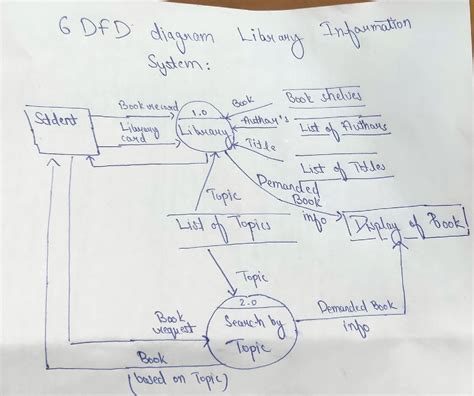 6 DFD diagram Library Information
System:
Book record
1.0
Book
Book shelves
Stdent
Library
card
Library
Author's
List of Authors
Title
List of Titles
Topic
Demanded
Book
info
List of Topics
Display of Book
Topic
2.0
Book
request
Search by
Topic
Demanded Book
info
Book
(based on Topic)